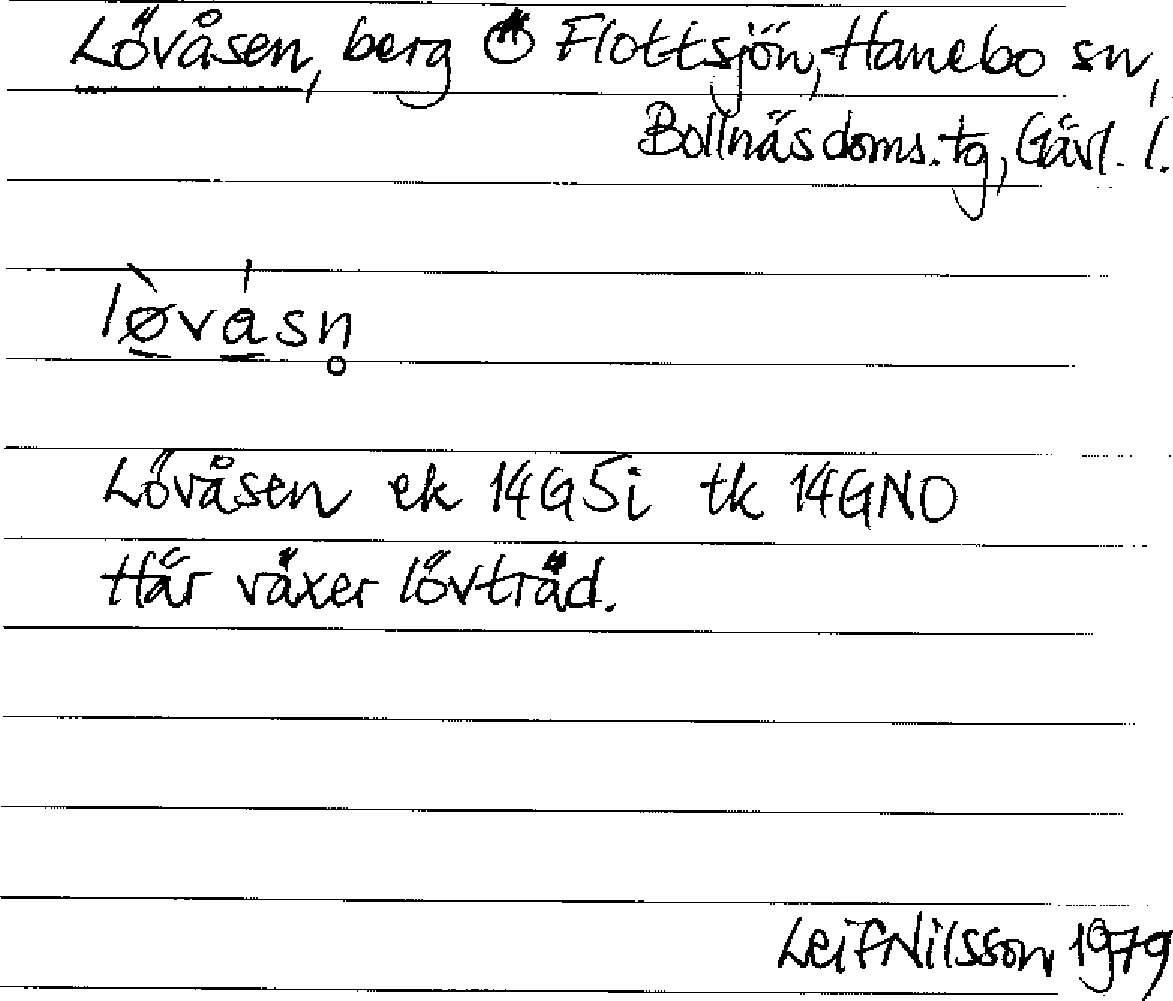 Lövåsen, berg Ö Flottsjön, Hanebo sn,
Bollnäs doms. tg, Gävl. l.
lø̠̀vá̠sn̥
Lövåsen ek 14G5i tk 14GNO
Här växer lövträd.
Leif Nilsson 1979